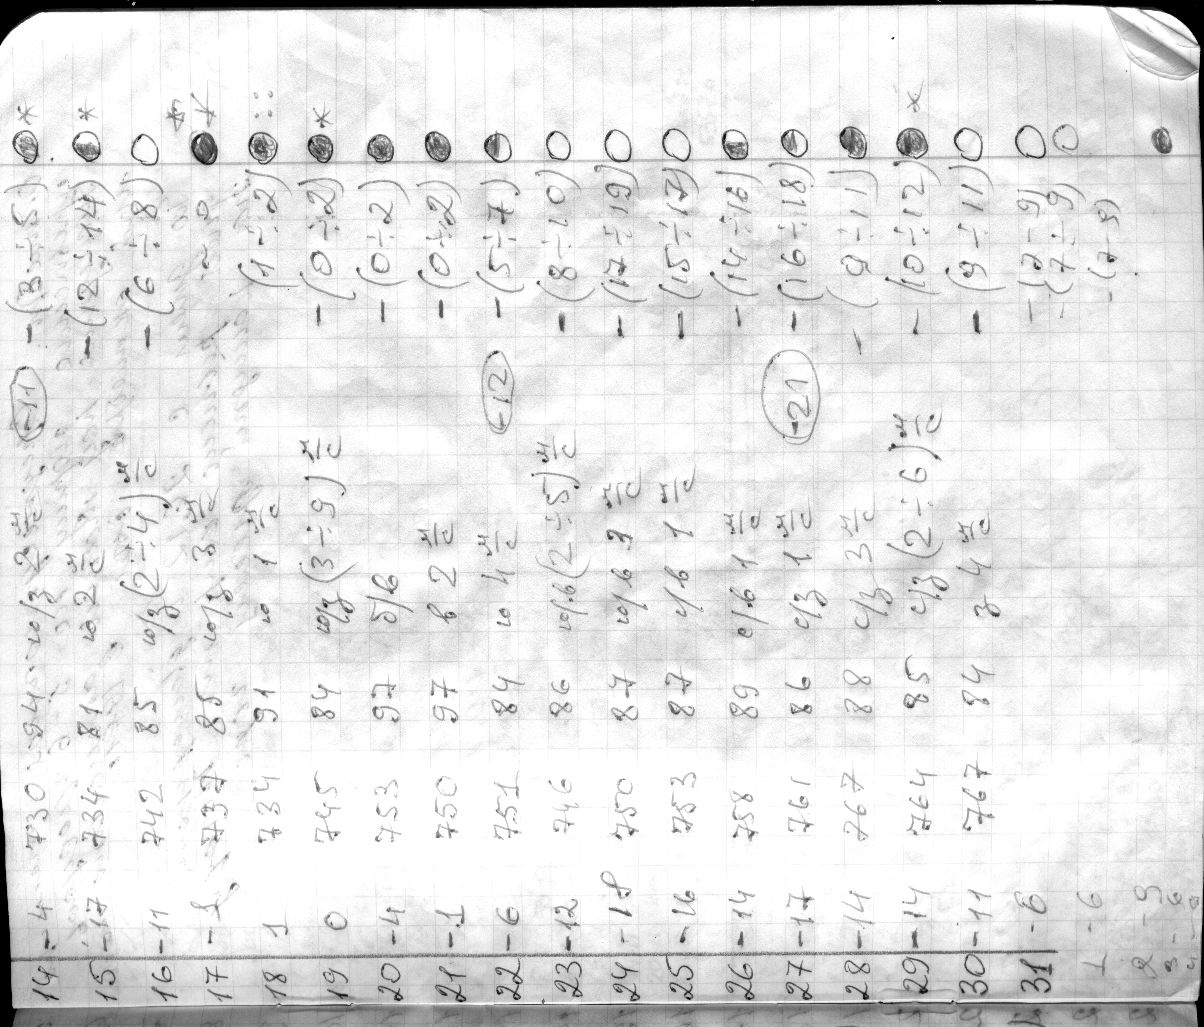 14 -4 730 94 ю/з 2 м/с (-11) -(3÷5) *
15 -17 734 81 ю 2 м/с -(12÷14) *
16 -11 742 85 ю/з (2÷4) м/с -(6÷8)
17 737 85 ю/з 3 м/с ~0
18 1 734 91 ю 1 м/с (1÷2)
19 0 745 84 ю/з (3÷9) м/с -(0÷2) *
20 -4 753 97 б/в -(0÷2)
21 -1 750 97 в 2 м/с -(0÷2)
22 -6 751 84 ю 4 м/с (-12) -(5÷7)
23 -12 746 86 ю/в (2÷5) м/с -(8÷10)
24 -18 750 87 ю/в м/с -(17÷19)
25 -16 753 87 с/в 1 м/с -(15÷17)
26 -14 758 89 с/в 1 м/с -(14÷16)
27 -17 761 86 с/з 1 м/с (-21) -(16÷18)
28 -14 767 88 с/з 3 м/с -(9÷11)
29 -14 764 85 с/з (2÷6) м/с -(10÷12) *
30 -11 767 84 з 4 м/с -(9÷11)
31 -6 -(7÷9)
1 -6 -(7÷9)
2 -9 -(7÷9)
3 -6